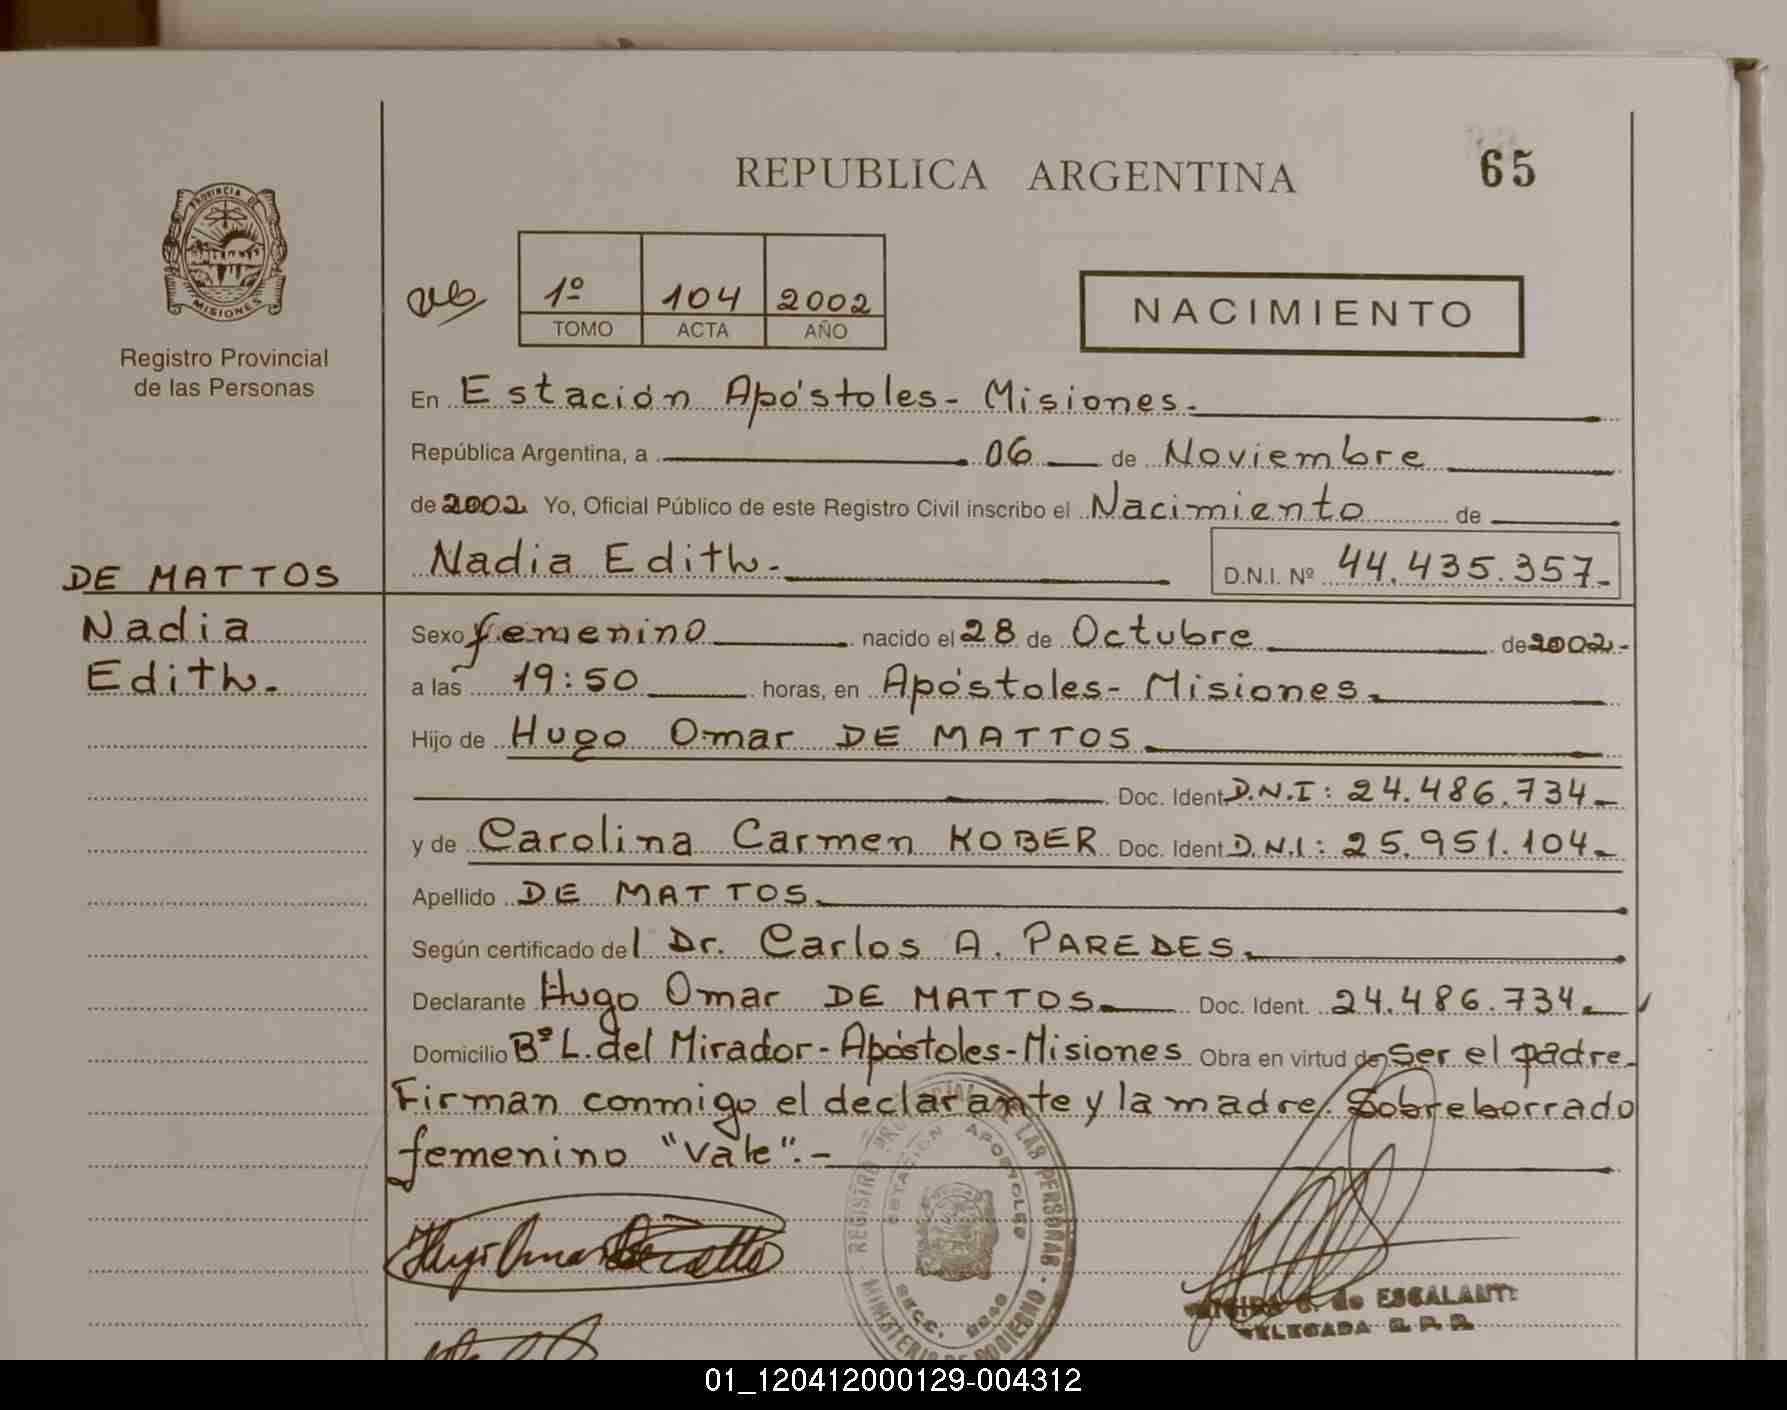 REPUBLICA ARGENTINA
65
PROVINCIA DE
MISIONES
Registro Provincial
de las Personas
1º 104 2002
TOMO ACTA AÑO
NACIMIENTO
En Estación Apóstoles - Misiones.
República Argentina, a 06 de Noviembre
de 2002 Yo, Oficial Público de este Registro Civil inscribo el Nacimiento de
Nadia Edith.- D.N.I. Nº 44.435.357.-
DE MATTOS
Nadia
Edith.-
Sexo femenino nacido el 28 de Octubre de 2002.-
a las 19:50 horas, en Apóstoles - Misiones.
Hijo de Hugo Omar DE MATTOS
Doc. Ident D.N.I: 24.486.734.-
y de Carolina Carmen KOBER Doc. Ident D.N.I: 25.951.104.-
Apellido DE MATTOS.
Según certificado del Dr. Carlos A. PAREDES.
Declarante Hugo Omar DE MATTOS. Doc. Ident. 24.486.734.-
Domicilio Bº L. del Mirador - Apóstoles - Misiones Obra en virtud de ser el padre.
Firman conmigo el declarante y la madre. Sobreborrado
femenino "vale".-
REGISTRO PROVINCIAL DE LAS PERSONAS
ESTACIÓN APOSTOLES
SECC.
MINISTERIO DE GOBIERNO
de ESCALANTE
DELEGADA R. P. P.
01_120412000129-004312